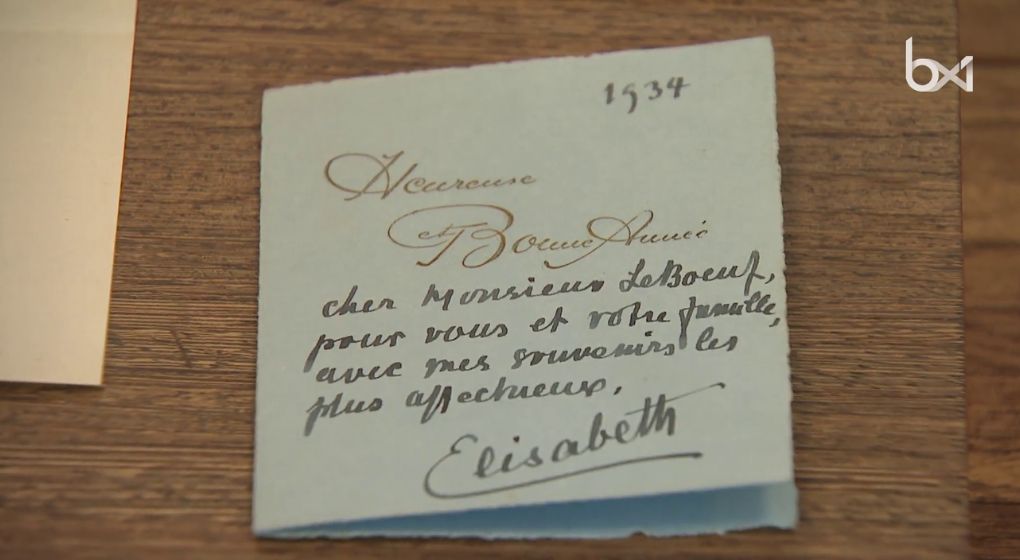 bx1
1934
Heureuse
et Bonne Année
cher Monsieur LeBoeuf,
pour vous et votre famille,
avec mes souvenirs les
plus affectueux.
Elisabeth